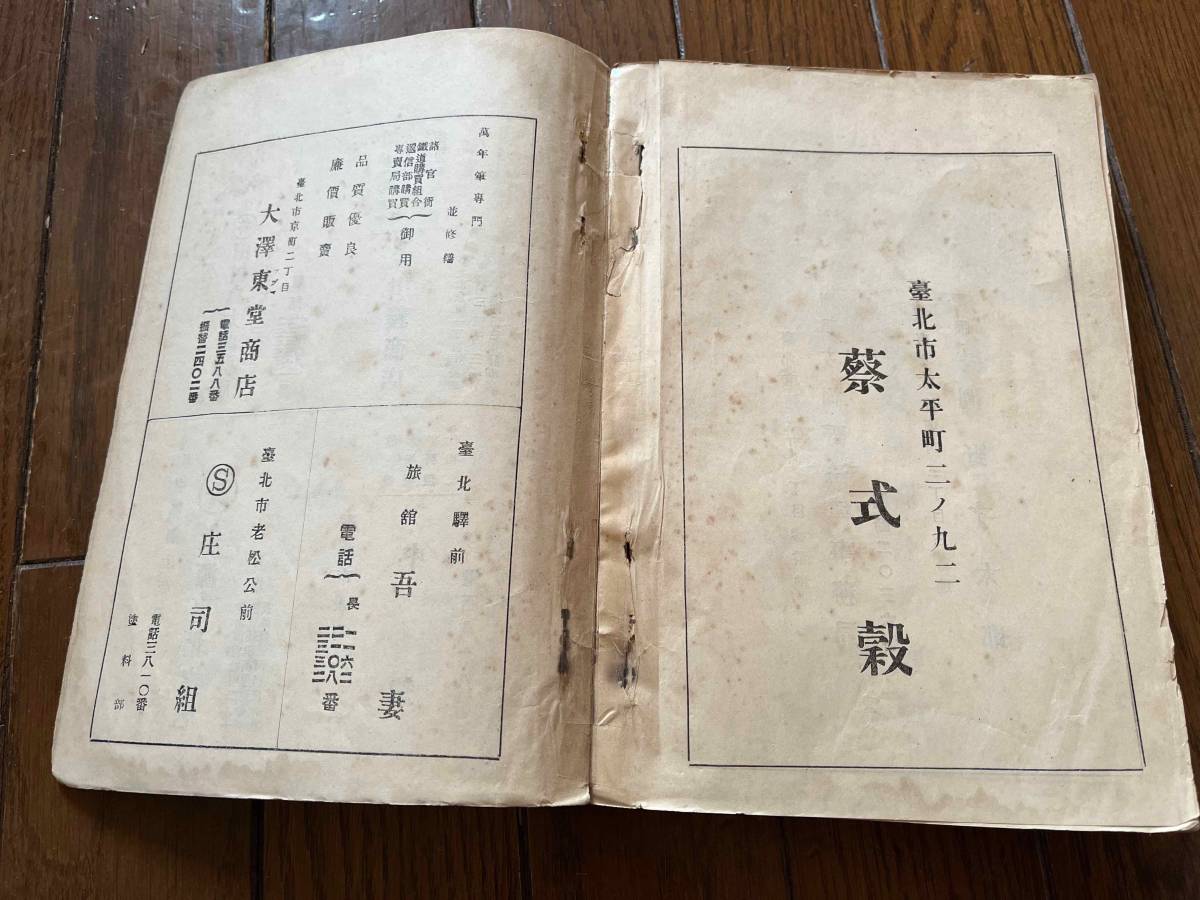 臺北市太平町二ノ九二
蔡式穀
萬年筆專門
並修繕
諸官衙
鐵道購買組合
遞信部購買
專賣局購買
御用
品質優良
廉價販賣
臺北市京町二丁目
大澤東堂商店
電話三五八八番
振替二四〇二番
臺北驛前
旅館
吾妻
電話
長
番
臺北市老松公前
Ⓢ庄司組
電話三八一〇番
塗料部